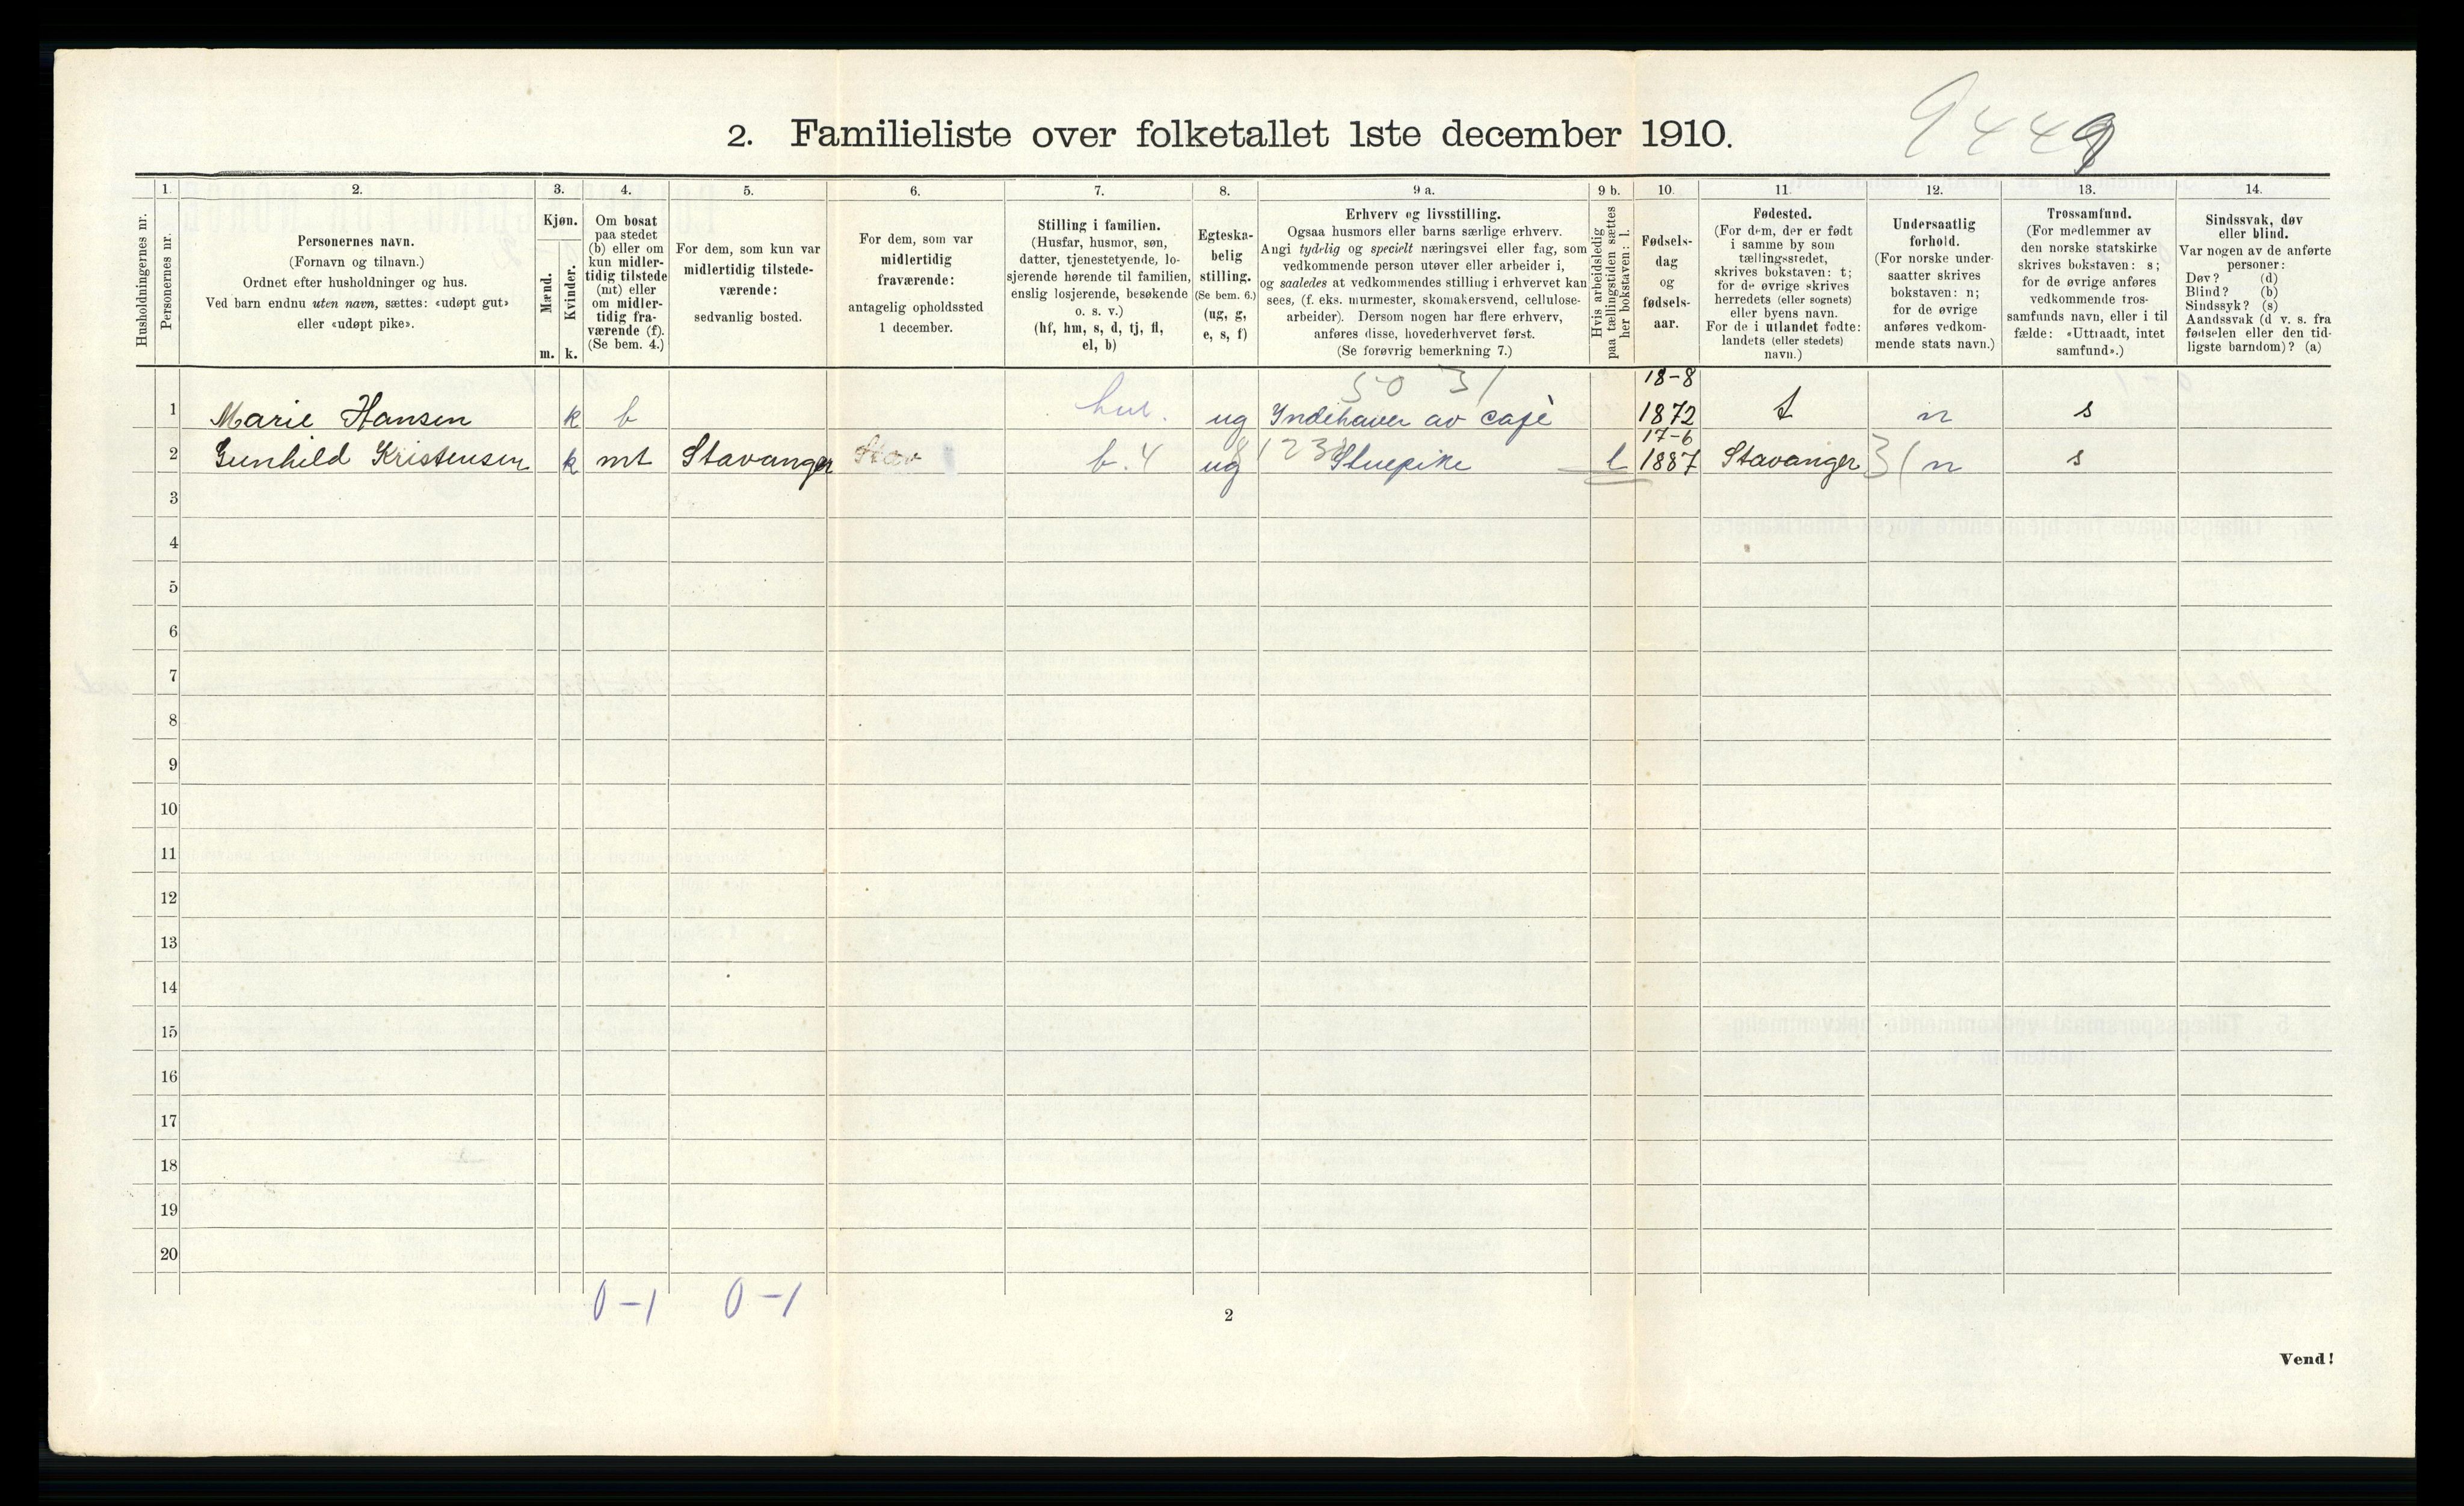 9449
2. Familieliste over folketallet 1ste december 1910.
1. 2. 3. 4. 5. 6. 7. 8. 9 a. 9 b. 10. 11. 12. 13. 14.
Husholdningernes nr.
Personernes nr.
Personernes navn.
(Fornavn og tilnavn.)
Ordnet efter husholdninger og hus.
Ved barn endnu uten navn, sættes: «udøpt gut»
eller «udøpt pike».
Kjøn.
Mænd.
Kvinder.
m. k.
Om bosat
paa stedet
(b) eller om
kun midler-
tidig tilstede
(mt) eller
om midler-
tidig fra-
værende (f).
(Se bem. 4.)
For dem, som kun var
midlertidig tilstede-
værende:
sedvanlig bosted.
For dem, som var
midlertidig
fraværende:
antagelig opholdssted
1 december.
Stilling i familien.
(Husfar, husmor, søn,
datter, tjenestetyende, lo-
sjerende hørende til familien,
enslig losjerende, besøkende
o. s. v.)
(hf, hm, s, d, tj, fl,
el, b)
Egteska-
belig
stilling.
(Se bem. 6.)
(ug, g,
e, s, f)
Erhverv og livsstilling.
Ogsaa husmors eller barns særlige erhverv.
Angi tydelig og specielt næringsvei eller fag, som
vedkommende person utøver eller arbeider i,
og saaledes at vedkommendes stilling i erhvervet kan
sees, (f. eks. murmester, skomakersvend, cellulose-
arbeider). Dersom nogen har flere erhverv,
anføres disse, hovederhvervet først.
(Se forøvrig bemerkning 7.)
Hvis arbeidsledig
paa tællingstiden sættes
her bokstaven: l.
Fødsels-
dag
og
fødsels-
aar.
Fødested.
(For dem, der er født
i samme by som
tællingsstedet,
skrives bokstaven: t;
for de øvrige skrives
herredets (eller sognets)
eller byens navn.
For de i utlandet fødte:
landets (eller stedets)
navn.)
Undersaatlig
forhold.
(For norske under-
saatter skrives
bokstaven: n;
for de øvrige
anføres vedkom-
mende stats navn.)
Trossamfund.
(For medlemmer av
den norske statskirke
skrives bokstaven: s;
for de øvrige anføres
vedkommende tros-
samfunds navn, eller i til-
fælde: «Uttraadt, intet
samfund».)
Sindssvak, døv
eller blind.
Var nogen av de anførte
personer:
Døv? (d)
Blind? (b)
Sindssyk? (s)
Aandssvak (d. v. s. fra
fødselen eller den tid-
ligste barndom)? (a)
50 31 18-8
1 Marie Hansen k b ug Indehaver av café 1872 t n s
17-6
2 Gunhild Kristensen k mt Stavanger Stav b. 4 ug Stuepike l 1887 Stavanger 31 n s
3
4
5
6
7
8
9
10
11
12
13
14
15
16
17
18
19
20
0-1 0-1
2
Vend!